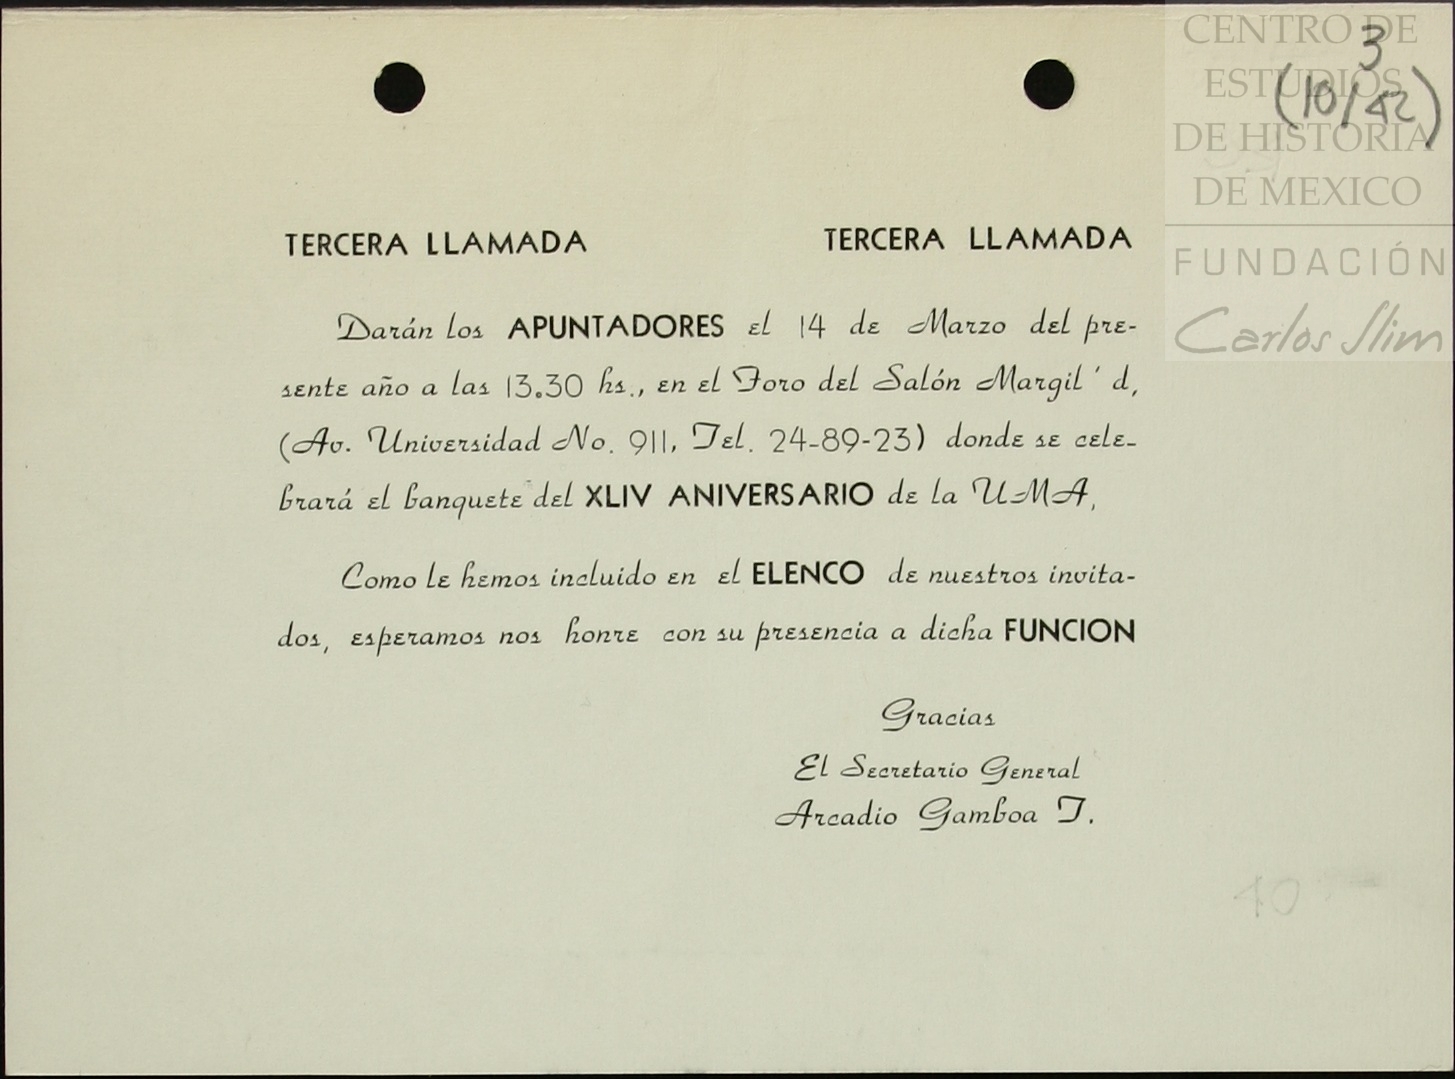 CENTRO DE
ESTUDIOS
DE HISTORIA
DE MEXICO
FUNDACIÓN
Carlos Slim
3
(10/42)
TERCERA LLAMADA TERCERA LLAMADA
Darán los APUNTADORES el 14 de Marzo del pre-
sente año a las 13.30 hs., en el Foro del Salón Margil ' d,
(Av. Universidad No. 911, Tel. 24-89-23) donde se cele-
brará el banquete del XLIV ANIVERSARIO de la UMA,
Como le hemos incluido en el ELENCO de nuestros invita-
dos, esperamos nos honre con su presencia a dicha FUNCION
Gracias
El Secretario General
Arcadio Gamboa T.
40